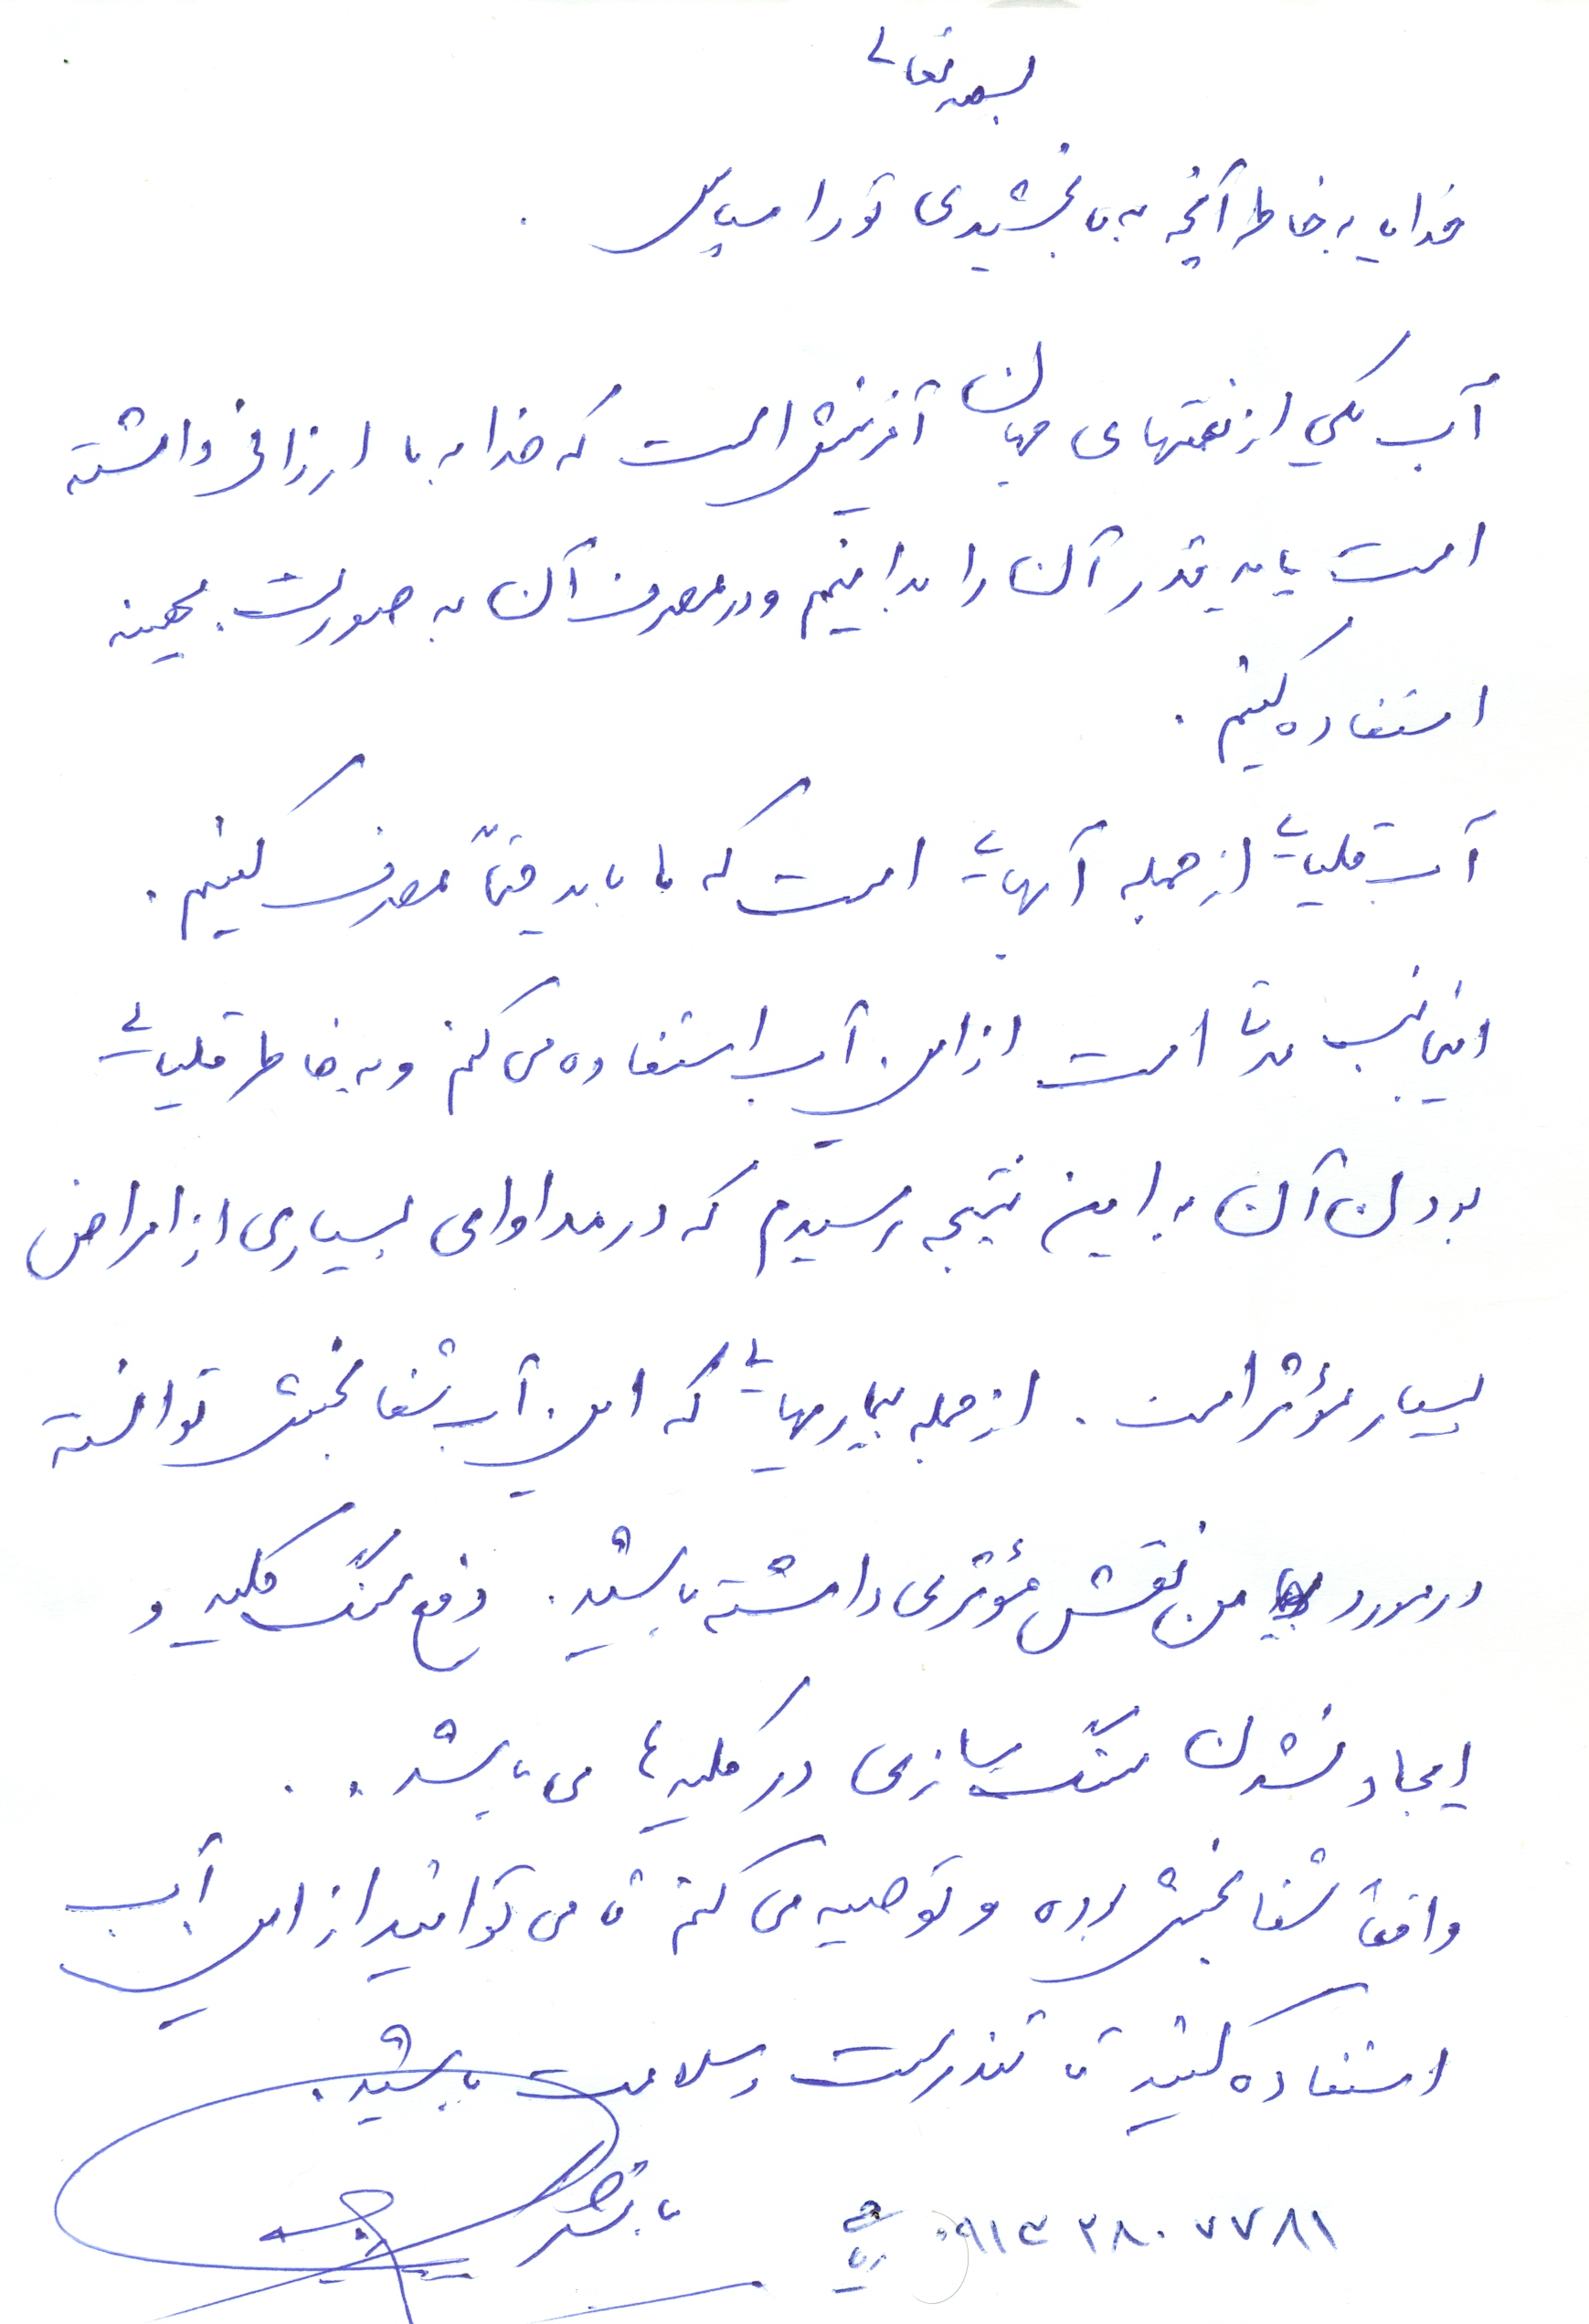 بسمه تعالی
خدایا به خاطر آنچه به ما بخشیدی تو را سپاس .
آب یکی از نعمتهای جهان آفرینش است که خدا به ما ارزانی داشته
است باید قدر آن را بدانیم و در مصرف آن به صورت بهینه
استفاده کنیم .
آب قلیایی از جمله آبهایی است که ما باید حتماً مصرف کنیم .
اینجانب مدتها است از این آب استفاده می کنم و به خاطر قلیایی
بودن آن به این نتیجه رسیدم که در مداوای بسیاری از امراض
بسیار مؤثر است . از جمله بیماریهایی که این آب شفابخش توانسته
در مورد من نقش مؤثری داشته باشد . دفع سنگ کلیه و
ایجاد نشدن سنگ سازی در کلیه ها می باشد . .
واقعاً شفابخش بوده و توصیه می کنم تا می توانید از این آب
استفاده کنید تا تندرست و سلامت باشید .
با تشکر
۰۹۱۳ ۳۸۰ ۷۷۸۱